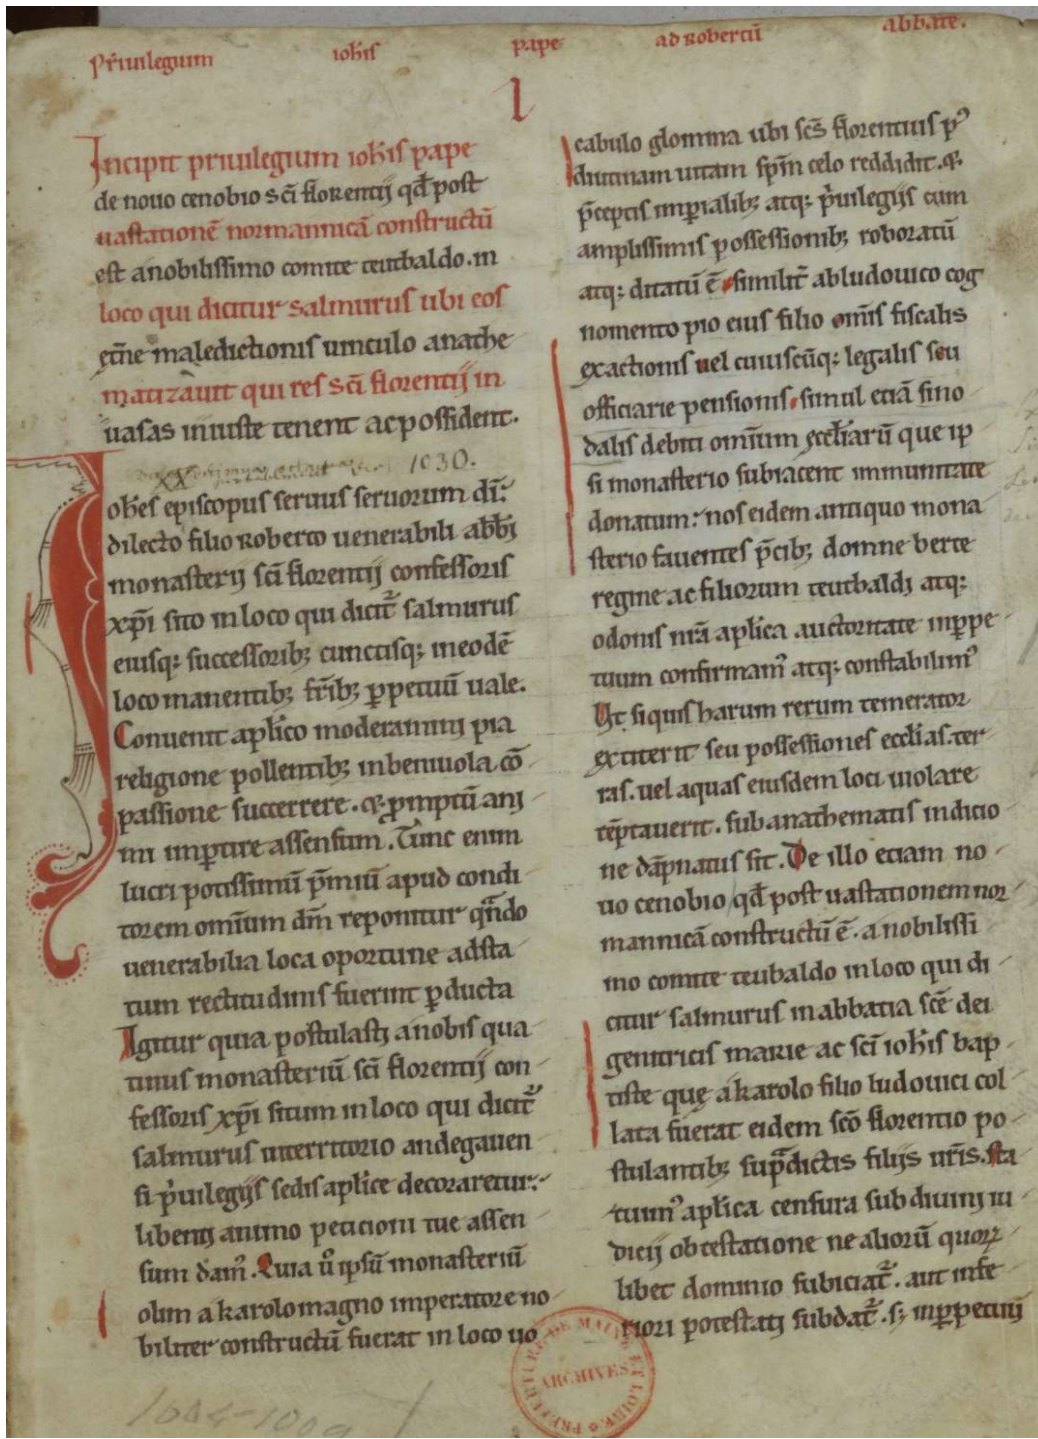 Priuilegium ioh̄is pape ad Robertū abbate.
I
Incipit priuilegium ioh̄is pape
de nouo cenobio sc̄i florentij qd̄ post
uastationē normannicā constructū
est a nobilissimo comite teutbaldo. in
loco qui dicitur salmurus ubi eos
et̄ne maledictionis uinculo anathe
matizauit qui res sc̄i florentij in
uasas iniuste tenent ac possident.
1030.
Ioh̄es episcopus seruus seruorum dī.
dilecto filio Roberto uenerabili abb̄i
monasterij sc̄i florentij confessoris
xp̄i sito in loco qui dicit᷑ salmurus
eiusq; successorib; cunctisq; in eodē
loco manentib; fr̄ib; ꝑpetuū uale.
Conuenit apl̄ico moderamini pia
religione pollentib; inbeniuola cō-
passione succerrere. et promptū ani-
mi imꝑtire assensum. Tunc enim
lucri potissimū p̄miū apud condi-
torem omīum dm̄ reponitur qn̄do
uenerabilia loca oportune ad sta
tum rectitudinis fuerint ꝑducta
Igitur quia postulasti a nobis qua-
tinus monasteriū sc̄i florentij con-
fessoris xp̄i situm in loco qui dicit᷑
salmurus interritorio andegauen-
si p̄uilegijs sedis apl̄ice decoraretur.
libenti animo peticioni tue assen-
sum dam᷒. Quia u̅o ipsū monasteriū
olim a karolo magno imperatore no-
biliter constructū fuerat in loco uo
cabulo glonna ubi sc̄s florentius p᷒
diutinam uitam sp̄m celo reddidit. et
p̄ceptis imꝑialib; atq; p̄uilegijs cum
amplissimis possessionib; roboratū
atq; ditatū ē similit᷑ ab ludouico cog
nomento pio eius filio omīs fiscalis
exactionis uel cuiuscūq; legalis seu
officiarie pensionis. simul etiā sino
dalis debiti omīum ęccl̄iarū que ip
si monasterio subiacent immunitate
donatum: nos eidem antiquo mona
sterio fauentes p̄cib; domne berte
regine ac filiorum teutbaldi atq;
odonis nr̄a apl̄ica auctoritate inꝑpe-
tuum confirmam᷒ atq; constabilim᷒
Ut siquis harum rerum temerator
extiterit seu possessiones eccl̄ias. ter-
ras. uel aquas eiusdem loci uiolare
tēptauerit. sub anathematis indicio
ne dāpnatus sit. De illo etiam no-
uo cenobio qd̄ post uastationem nor-
mannicā constructū ē. a nobilissi-
mo comite teubaldo in loco qui di-
citur salmurus in abbatia sc̄e dei
genitricis marie ac sc̄i ioh̄is bap-
tiste quę a karolo filio ludouici col-
lata fuerat eidem sc̄o florentio po-
stulantib; sup̄dictis filijs ur̄is. sta-
tuim᷒ apl̄ica censura sub diuini iu-
dicij obtestatione ne aliorū quorū
libet dominio subiciat᷑. aut infe-
riori potestati subdat᷑. s; inꝑpetuū
PREFECTURE DE MAINE ET LOIRE
ARCHIVES
1004-1009